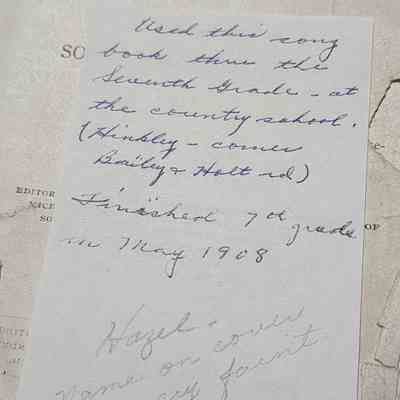 Used this song
book thru the
Seventh Grade - at
the country school.
(Hinkley - corner
Bailey & Holt rd)
Finished 7th grade
in May 1908
Hazel -
name on cover
faint
SO
EDITOR
SO
OF